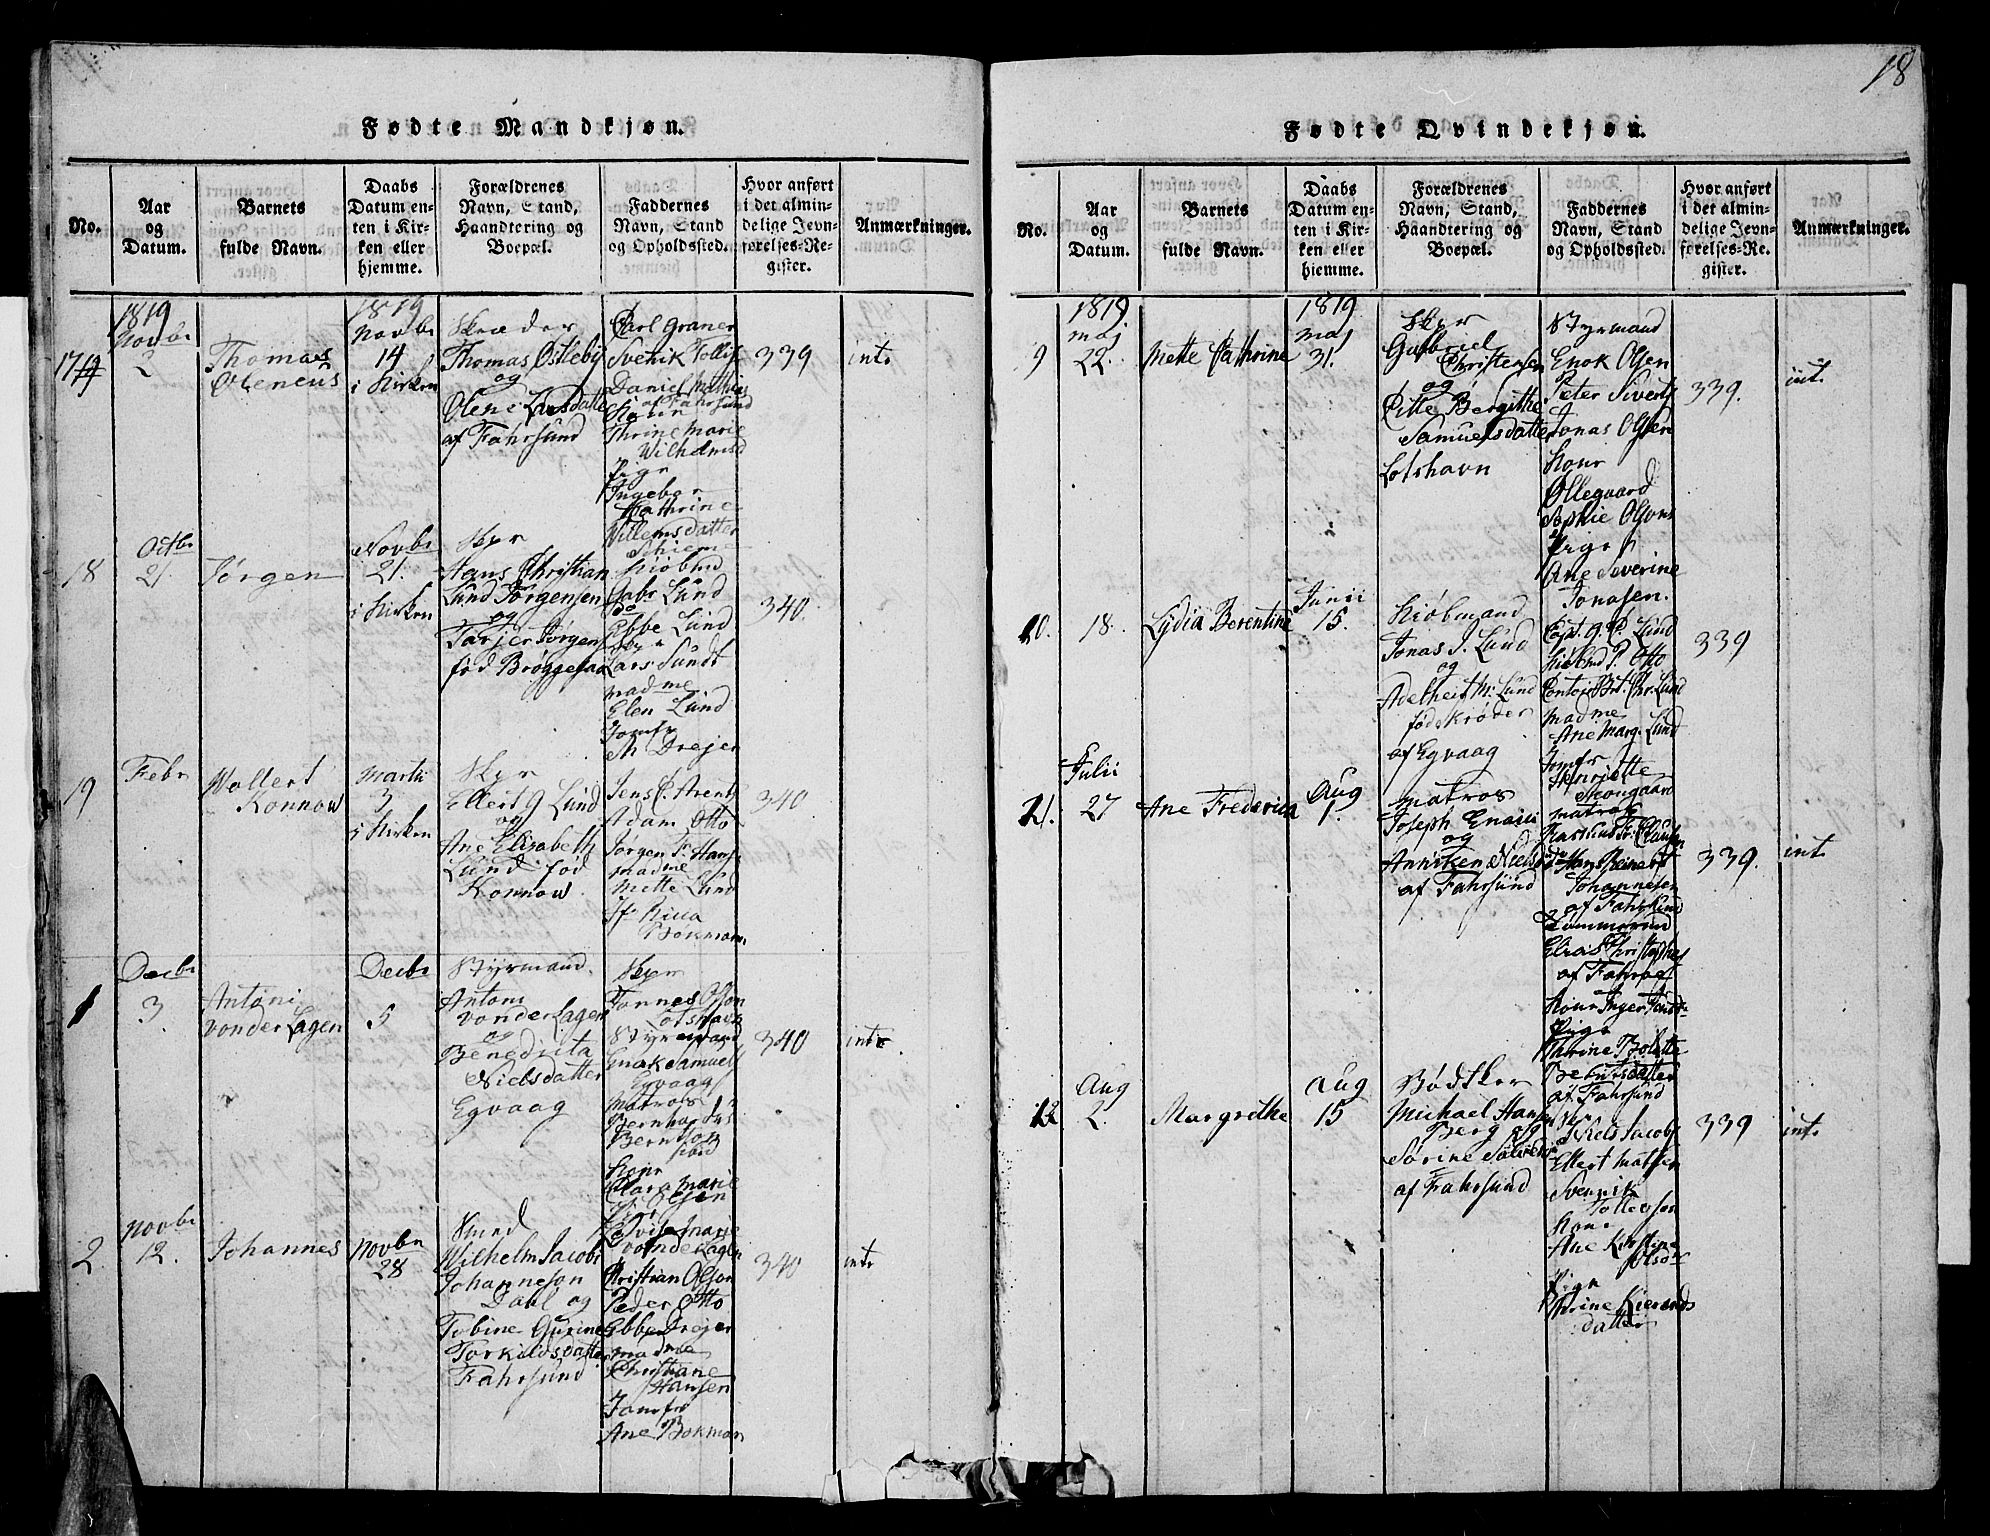 18
Fødte Mandkjøn.
No.
Aar
og
Datum.
Barnets
fulde Navn.
Daabs
Datum en-
ten i Kir-
ken eller
hjemme.
Forældrenes
Navn, Stand,
Haandtering og
Boepæl.
Faddernes
Navn, Stand
og Opholdssted.
Hvor anført
i det almin-
delige Jevn-
førelses-Re-
gister.
Anmærkninger.
17
1819
Novbr
2
Thomas
Oleneus
1819
Novbr
14
i Kirken
Skræder
Thomas Ostleby
og
Olene
af Fahrsund
Carl Graner
Svenik Tollis
Daniel Mathias
af Fahrsund
Kone
Thrine Marie
Wilhelmsd
Pige
Ingebor
Kathrine
Villemsdatter
339
int.
18
Octbr
21.
Jørgen
Novbr
21.
i Kirken
Skpr
Hans Christian
Lund Jørgensen
og
Jørgens
fød Brøggesaa
Kiøbmd
Gabr Lund
do
Ebbe Lund
Skpr
Lars Sundt
Madme
Elen Lund
Jomfr
Th Drejer
340.
19
Febr
Wollert
Konnow
Martii
3
i Kirken
Skpr
Ellert G Lund
og
Ane Elisabeth
Lund fød
Konnow.
Jens C. Arents
Adam Otto
Jørgen F. Hans
madme
Mette Lund
Jf. Ricca
Bokman
340
1
Decbr
3.
Antoni
vonder Lagen
Decbr
5
Styrmand.
Antoni
vonder Lagen
og
Benedicta
Nielsdatter
Egvaag
Skpr
Tønnes Olson
Lotshavn
Styrmand
Enok Samuels
Egvaag
Matros
Bernhardus
Berntson
Kone
Clara Marie
340
int.
2.
Novbr
12.
Johannes
Novbr
28
Wilhelm Jacob
Johanneson
Dahl og
Tobine Gurine
Torkildsdatter
Fahrsund
Lovise Marie
vonder Lagen
Christian Olson
Peder Otto
Ebbe Drejer
madme
Christiane
Hansen
Jomfr
Ane Bokman
340
int.
Fødte Qvindekjøn.
No.
Aar
og
Datum.
Barnets
fulde Navn.
Daabs
Datum en-
ten i Kir-
ken eller
hjemme.
Forældrenes
Navn, Stand,
Haandtering og
Boepæl.
Faddernes
Navn, Stand
og Opholdssted.
Hvor anført
i det almin-
delige Jevn-
førelses-Re-
gister.
Anmærkninger.
9
1819
maj
22.
Mette Cathrine
1819
maj
31.
Skpr
Gabriel
Christensen
og
Bergithe
Samuelsdatter
Lotshavn
Styrmand
Enok Olsen
Peter Sivert
Jonas Olsen
Kone
Ollegaard
Sophie Olsens
Pige
Ane Severine
Jonasen.
339.
int.
10.
18.
Lydia Berentine
Junii
15.
Kiøbmand
Jonas J. Lund
og
Adelheit M. Lund
fød Krøder
af Egvaag
Capt. G. P. Lund
Kiøbmd P. Otto
Chr. Lund
madme
Ane Marg. Lund
Jomfr
Henriette
339
Julii
27
Ane Frederica
Aug
1.
matros
Joseph
og
Anniken Nielsd
af Fahrsund
matros
Johannesen
af Fahrsund
Tømmermd
Elias
Kone Inger
Pige
Thrine Bolette
Berntsdatter
af Fahrsund
339.
int.
12
Aug
2.
Margrethe
Aug
15
Bødtker
Michael Hansen
Berg og
Sørine
af Fahrsund
Niels Jacobs
Ellert
Svennik
Tollevsen
Kone
Ane Kirstine
Pige
datter
339
int.